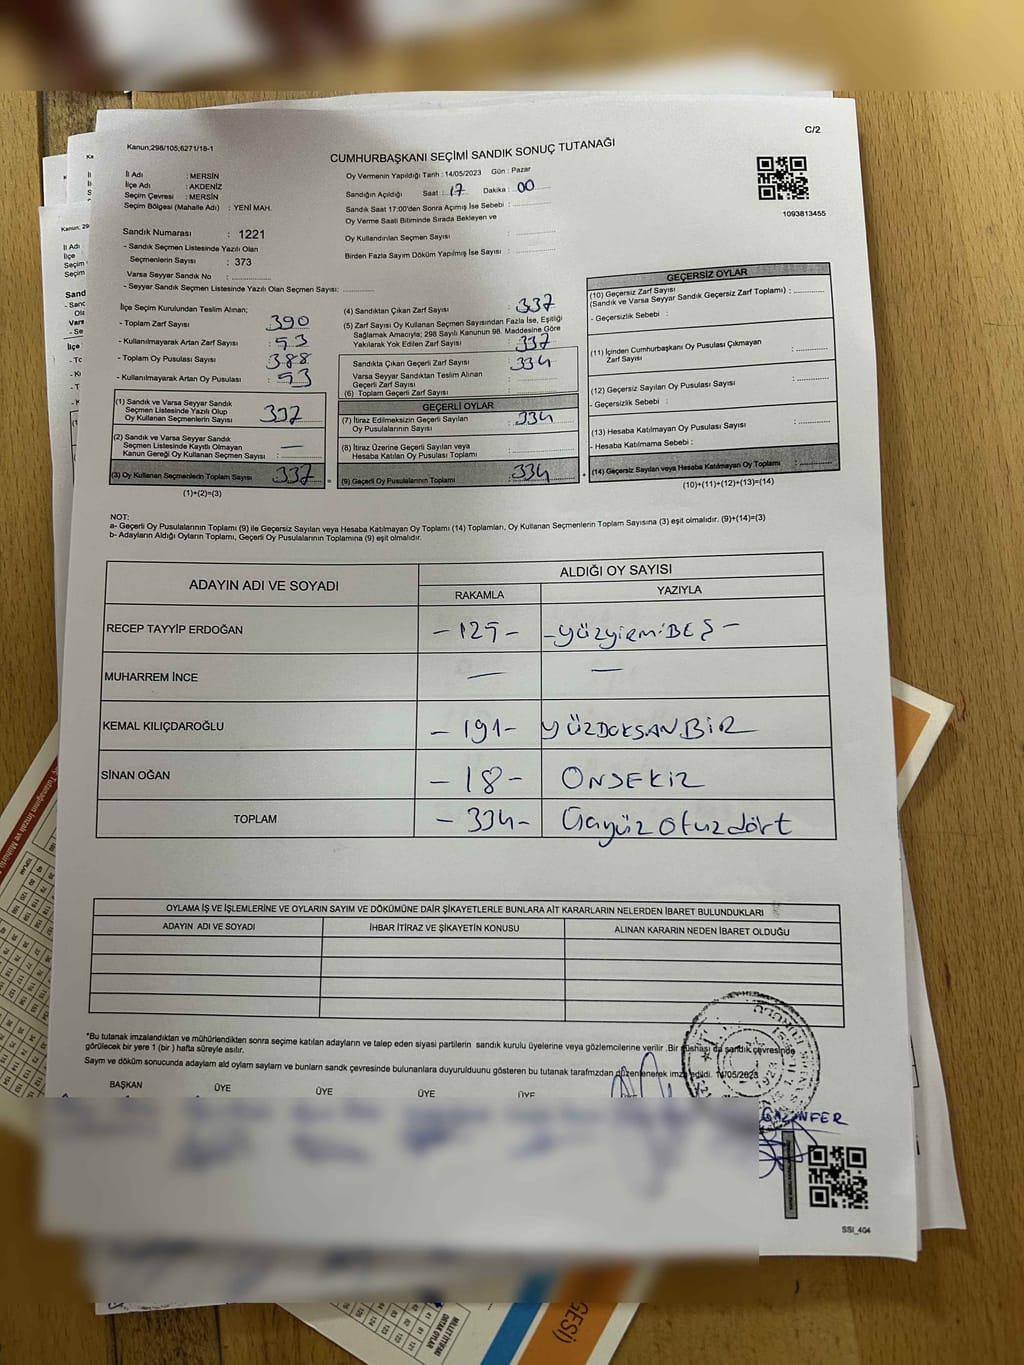 C/2
Kanun;298/105;6271/18-1
CUMHURBAŞKANI SEÇİMİ SANDIK SONUÇ TUTANAĞI
1093813455
İl Adı : MERSİN
İlçe Adı : AKDENİZ
Seçim Çevresi : MERSİN
Seçim Bölgesi (Mahalle Adı) : YENİ MAH.
Sandık Numarası : 1221
- Sandık Seçmen Listesinde Yazılı Olan
Seçmenlerin Sayısı : 373
Varsa Seyyar Sandık No :
- Seyyar Sandık Seçmen Listesinde Yazılı Olan Seçmen Sayısı:
Oy Vermenin Yapıldığı Tarih : 14/05/2023 Gün : Pazar
Sandığın Açıldığı Saat : 17 Dakika : 00
Sandık Saat 17:00'den Sonra Açımış İse Sebebi :
Oy Verme Saati Bitiminde Sırada Bekleyen ve
Oy Kullandırılan Seçmen Sayısı :
Birden Fazla Sayım Döküm Yapılmış İse Sayısı :
İlçe Seçim Kurulundan Teslim Alınan;
- Toplam Zarf Sayısı : 390
- Kullanılmayarak Artan Zarf Sayısı : 53
- Toplam Oy Pusulası Sayısı : 388
- Kullanılmayarak Artan Oy Pusulası : 53
(1) Sandık ve Varsa Seyyar Sandık
Seçmen Listesinde Yazılı Olup
Oy Kullanan Seçmenlerin Sayısı : 337
(2) Sandık ve Varsa Seyyar Sandık
Seçmen Listesinde Kayıtlı Olmayan
Kanun Gereği Oy Kullanan Seçmen Sayısı : —
(3) Oy Kullanan Seçmenlerin Toplam Sayısı : 337
(1)+(2)=(3)
(4) Sandıktan Çıkan Zarf Sayısı : 337
(5) Zarf Sayısı Oy Kullanan Seçmen Sayısından Fazla İse, Eşitliği
Sağlamak Amacıyla; 298 Sayılı Kanunun 98. Maddesine Göre
Yakılarak Yok Edilen Zarf Sayısı : 337
Sandıkta Çıkan Geçerli Zarf Sayısı : 334
Varsa Seyyar Sandıktan Teslim Alınan
Geçerli Zarf Sayısı :
(6) Toplam Geçerli Zarf Sayısı :
GEÇERLİ OYLAR
(7) İtiraz Edilmeksizin Geçerli Sayılan
Oy Pusulalarının Sayısı : 334
(8) İtiraz Üzerine Geçerli Sayılan veya
Hesaba Katılan Oy Pusulası Toplamı :
(9) Geçerli Oy Pusulalarının Toplamı : 334
GEÇERSİZ OYLAR
(10) Geçersiz Zarf Sayısı
(Sandık ve Varsa Seyyar Sandık Geçersiz Zarf Toplamı) :
- Geçersizlik Sebebi :
(11) İçinden Cumhurbaşkanı Oy Pusulası Çıkmayan
Zarf Sayısı :
(12) Geçersiz Sayılan Oy Pusulası Sayısı :
- Geçersizlik Sebebi :
(13) Hesaba Katılmayan Oy Pusulası Sayısı :
- Hesaba Katılmama Sebebi :
(14) Geçersiz Sayılan veya Hesaba Katılmayan Oy Toplamı :
(10)+(11)+(12)+(13)=(14)
NOT:
a- Geçerli Oy Pusulalarının Toplamı (9) ile Geçersiz Sayılan veya Hesaba Katılmayan Oy Toplamı (14) Toplamları, Oy Kullanan Seçmenlerin Toplam Sayısına (3) eşit olmalıdır. (9)+(14)=(3)
b- Adayların Aldığı Oyların Toplamı, Geçerli Oy Pusulalarının Toplamına (9) eşit olmalıdır.
ADAYIN ADI VE SOYADI ALDIĞI OY SAYISI
RAKAMLA YAZIYLA
RECEP TAYYİP ERDOĞAN -125- -yüzyirmiBEŞ-
MUHARREM İNCE — —
KEMAL KILIÇDAROĞLU -191- YÜZDOKSANBİR
SİNAN OĞAN -18- ONSEKİZ
TOPLAM -334- Üçyüz otuzdört
OYLAMA İŞ VE İŞLEMLERİNE VE OYLARIN SAYIM VE DÖKÜMÜNE DAİR ŞİKAYETLERLE BUNLARA AİT KARARLARIN NELERDEN İBARET BULUNDUKLARI
ADAYIN ADI VE SOYADI İHBAR İTİRAZ VE ŞİKAYETİN KONUSU ALINAN KARARIN NEDEN İBARET OLDUĞU
*Bu tutanak imzalandıktan ve mühürlendikten sonra seçime katılan adayların ve talep eden siyasi partilerin sandık kurulu üyelerine veya gözlemcilerine verilir .Bir nüshası da sandık çevresinde
görülecek bir yere 1 (bir ) hafta süreyle asılır.
Sayım ve döküm sonucunda adayların ald oyların sayları ve bunların sandk çevresinde bulunanlara duyurulduunu gösteren bu tutanak tarafmzdan düzenlenerek imza edildi. 14/05/2023
BAŞKAN ÜYE ÜYE ÜYE ÜYE
GAZANFER
SSI_404
GESİ)